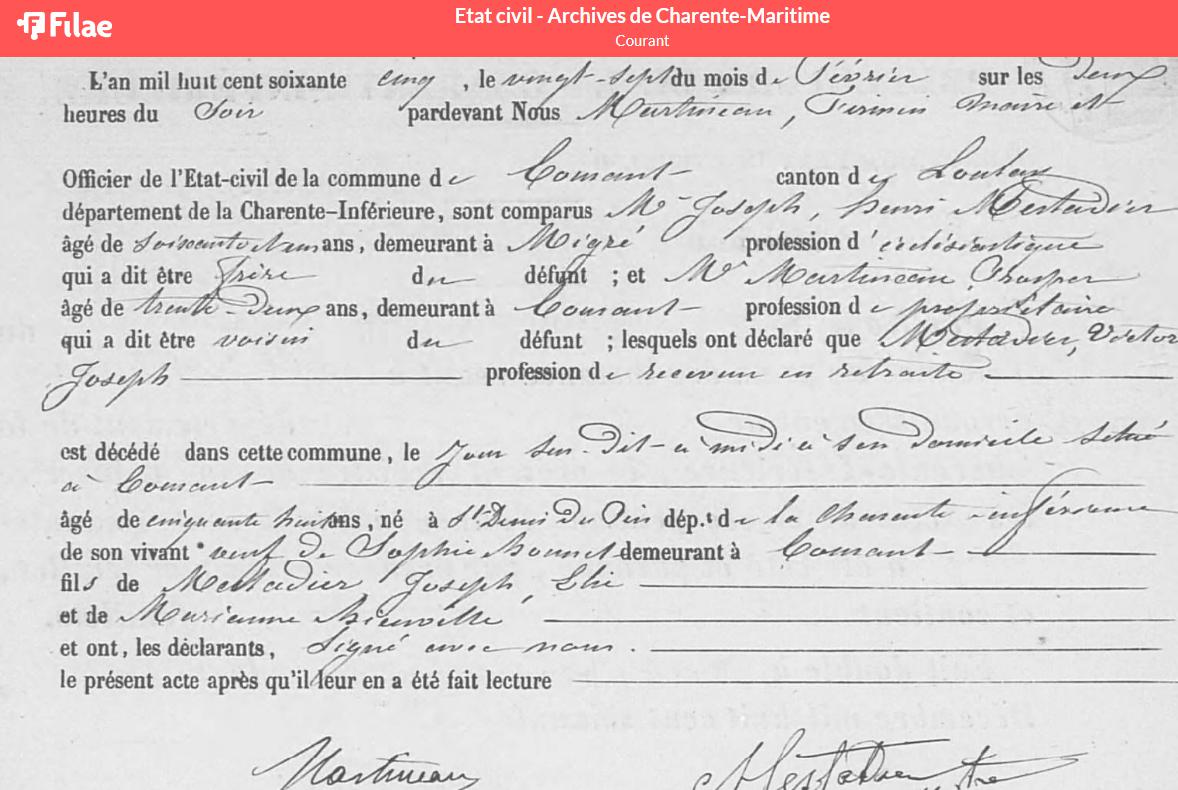 Filae
Etat civil - Archives de Charente-Maritime
Courant
L'an mil huit cent soixante cinq, le vingt-sept du mois de Février sur les Deux
heures du Soir pardevant Nous Martineau, Firmin maire et
Officier de l'Etat-civil de la commune de Courant canton de Loulay
département de la Charente-Inférieure, sont comparus Mr Joseph, henri Mestadier
âgé de soixante et un ans, demeurant à Migré profession d'eclésiastique
qui a dit être frère du défunt ; et Mr Martineau Prosper
âgé de trente-Deux ans, demeurant à Courant profession de propriétaire
qui a dit être voisin du défunt ; lesquels ont déclaré que Mestadier, Victor
Joseph profession de receveur en retraite
est décédé dans cette commune, le Jour sus-Dit à midi à son domicile situé
à Courant
âgé de cinquante huit ans, né à St Denis Du Pin dép.t de la Charente inférieure
de son vivant veuf de Sophie Bonnet demeurant à Courant
fils de Mestadier Joseph, Elie
et de Marianne
et ont, les déclarants, Signé avec nous.
le présent acte après qu'il leur en a été fait lecture
Martineau Mestadier